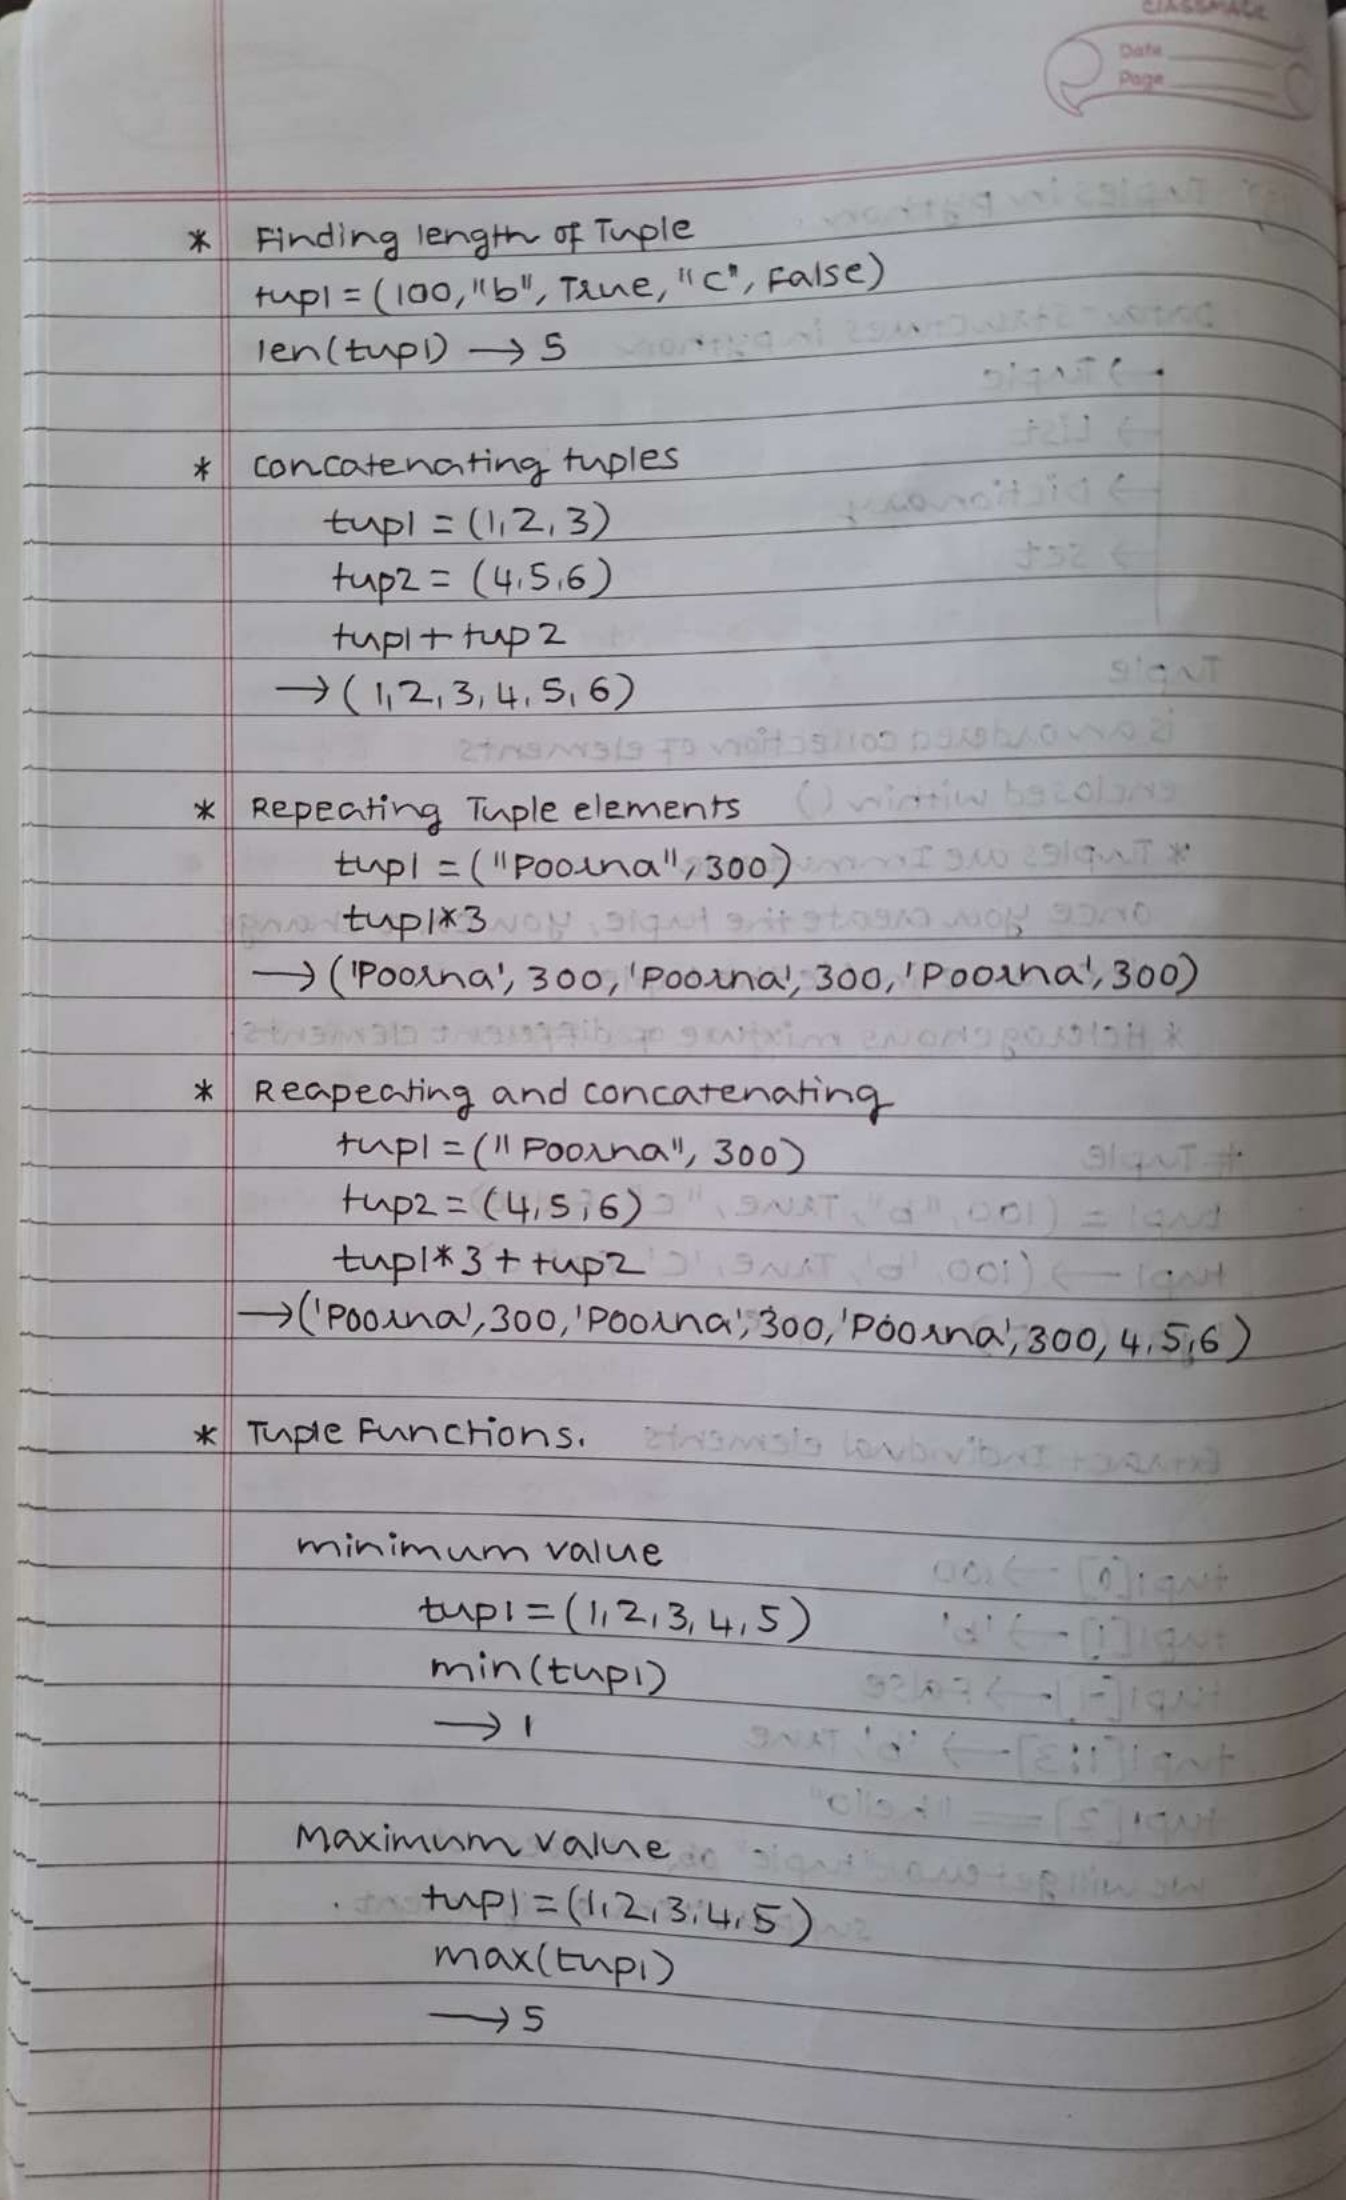 classmate
Date
Page
* Finding length of Tuple
tup1 = (100, "b", True, "c", False)
len(tup1) → 5
* concatenating tuples
tup1 = (1, 2, 3)
tup2 = (4, 5, 6)
tup1 + tup2
→ (1, 2, 3, 4, 5, 6)
* Repeating Tuple elements
tup1 = ("Poorna", 300)
tup1*3
→ ('Poorna', 300, 'Poorna', 300, 'Poorna', 300)
* Reapeating and concatenating
tup1 = ("Poorna", 300)
tup2 = (4, 5, 6)
tup1*3 + tup2
→ ('Poorna', 300, 'Poorna', 300, 'Poorna', 300, 4, 5, 6)
* Tuple Functions.
minimum value
tup1 = (1, 2, 3, 4, 5)
min(tup1)
→ 1
Maximum value
tup1 = (1, 2, 3, 4, 5)
max(tup1)
→ 5